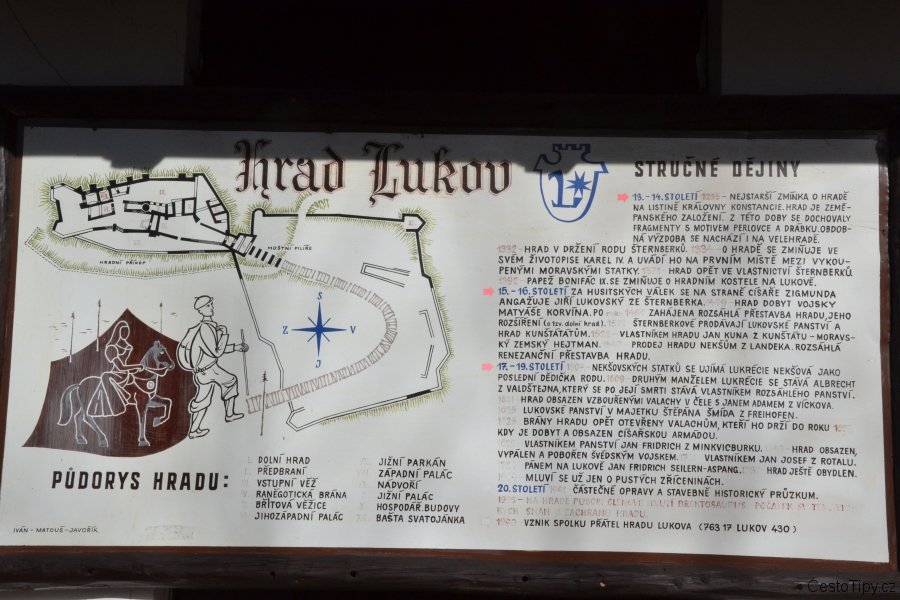 Hrad Lukov
STRUČNÉ DĚJINY
13.-14. STOLETÍ - NEJSTARŠÍ ZMÍŇKA O HRADĚ
NA LISTINĚ KRÁLOVNY KONSTANCIE. HRAD JE ZEMĚ-
PANSKÉHO ZALOŽENÍ. Z TÉTO DOBY SE DOCHOVALY
FRAGMENTY S MOTIVEM PERLOVCE A DRÁBKU. OBDOB-
NÁ VÝZDOBA SE NACHÁZÍ I NA VELEHRADĚ.
1332 - HRAD V DRŽENÍ RODU ŠTERNBERKŮ. 1334 - O HRADĚ SE ZMIŇUJE VE
SVÉM ŽIVOTOPISE KAREL IV. A UVÁDÍ HO NA PRVNÍM MÍSTĚ MEZI VYKOU-
PENÝMI MORAVSKÝMI STATKY. 1371 - HRAD OPĚT VE VLASTNICTVÍ ŠTERNBERKŮ.
1392 PAPEŽ BONIFÁC IX. SE ZMIŇUJE O HRADNÍM KOSTELE NA LUKOVĚ.
15.-16. STOLETÍ ZA HUSITSKÝCH VÁLEK SE NA STRANĚ CÍSAŘE ZIGMUNDA
ANGAŽUJE JIŘÍ LUKOVSKÝ ZE ŠTERNBERKA. HRAD DOBYT VOJSKY
MATYÁŠE KORVÍNA. PO ROCE ZAHÁJENA ROZSÁHLÁ PŘESTAVBA HRADU, JEHO
ROZŠÍŘENÍ (o tzv. dolní hrad). ŠTERNBERKOVÉ PRODÁVAJÍ LUKOVSKÉ PANSTVÍ A
HRAD KUNŠTÁTŮM. VLASTNÍKEM HRADU JAN KUNA Z KUNŠTÁTU - MORAVS-
KÝ ZEMSKÝ HEJTMAN. PRODEJ HRADU NEKŠŮM Z LANDEKA. ROZSÁHLÁ
RENEZANČNÍ PŘESTAVBA HRADU.
17.-19. STOLETÍ NEKŠOVSKÝCH STATKŮ SE UJÍMÁ LUKRÉCIE NEKŠOVÁ JAKO
POSLEDNÍ DĚDIČKA RODU. 1609 DRUHÝM MANŽELEM LUKRÉCIE SE STÁVÁ ALBRECHT
Z VALDŠTEJNA, KTERÝ SE PO JEJÍ SMRTI STÁVÁ VLASTNÍKEM ROZSÁHLÉHO PANSTVÍ.
HRAD OBSAZEN VZBOUŘENÝMI VALACHY V ČELE S JANEM ADAMEM Z VÍCKOVA.
LUKOVSKÉ PANSTVÍ V MAJETKU ŠTĚPÁNA ŠMÍDA Z FREIHOFEN.
1626 BRÁNY HRADU OPĚT OTEVŘENY VALACHŮM, KTEŘÍ HO DRŽÍ DO ROKU
KDY JE DOBYT A OBSAZEN CÍSAŘSKOU ARMÁDOU.
VLASTNÍKEM PANSTVÍ JAN FRIDRICH Z MINKVICBURKU. HRAD OBSAZEN,
VYPÁLEN A POBOŘEN ŠVÉDSKÝM VOJSKEM. VLASTNÍKEM JAN JOSEF Z ROTALU.
PÁNEM NA LUKOVĚ JAN FRIDRICH SEILERN-ASPANG. HRAD JEŠTĚ OBYDLEN.
MLUVÍ SE UŽ JEN O PUSTÝCH ZŘÍCENINÁCH.
20. STOLETÍ ČÁSTEČNÉ OPRAVY A STAVEBNĚ HISTORICKÝ PRŮZKUM.
1983 - NA HRADĚ PŮSOBÍ ČLENOVÉ HNUTÍ BRONTOSAURUS
SNAH O ZÁCHRANU HRADU.
VZNIK SPOLKU PŘÁTEL HRADU LUKOVA (763 17 LUKOV 430)
MOSTNÍ PILÍŘE
HRADNÍ PŘÍKOP
S
Z V
J
PŮDORYS HRADU:
I. DOLNÍ HRAD
II. PŘEDBRANÍ
III. VSTUPNÍ VĚŽ
IV. RANĚGOTICKÁ BRÁNA
V. BŘITOVÁ VĚŽICE
VI. JIHOZÁPADNÍ PALÁC
VII. JIŽNÍ PARKÁN
VIII. ZÁPADNÍ PALÁC
IX. NÁDVOŘÍ
X. JIŽNÍ PALÁC
XI. HOSPODÁŘ. BUDOVY
XII. BAŠTA SVATOJÁNKA
IVÁN - MATOUŠ - JAVOŘÍK
CestoTipy.cz